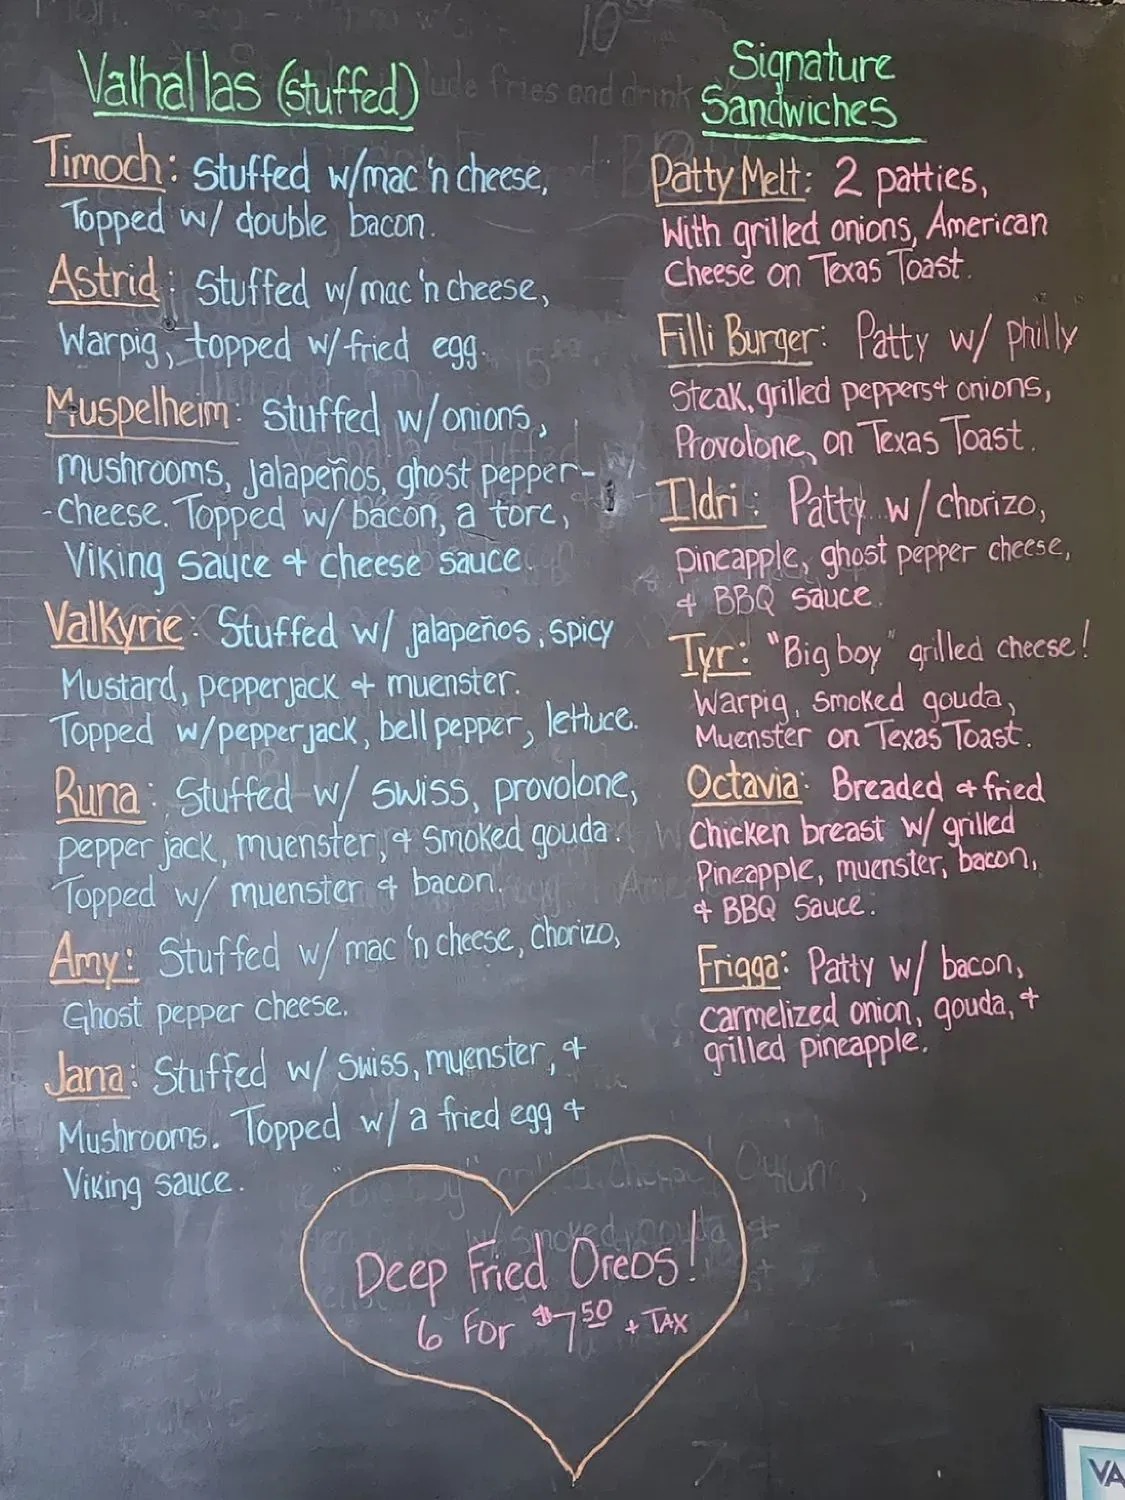 Valhallas (stuffed)
Timoch: Stuffed w/mac 'n cheese,
Topped w/ double bacon.
Astrid: Stuffed w/mac 'n cheese,
Warpig, topped w/fried egg.
Muspelheim: Stuffed w/onions,
mushrooms, jalapeños, ghost pepper-
-cheese. Topped w/bacon, a torc,
Viking Sauce + cheese sauce.
Valkyrie: Stuffed w/ jalapeños, spicy
Mustard, pepperjack + muenster.
Topped w/pepperjack, bell pepper, lettuce.
Runa: Stuffed w/ swiss, provolone,
pepper jack, muenster, + smoked gouda.
Topped w/ muenster + bacon.
Amy: Stuffed w/ mac 'n cheese, chorizo,
Ghost pepper cheese.
Jana: Stuffed w/ Swiss, muenster, +
Mushrooms. Topped w/ a fried egg +
Viking sauce.
Signature
Sandwiches
Patty Melt: 2 patties,
With grilled onions, American
Cheese on Texas Toast.
Filli Burger: Patty w/ philly
Steak, grilled peppers + onions,
Provolone, on Texas Toast.
Ildri: Patty w/chorizo,
pineapple, ghost pepper cheese,
+ BBQ sauce.
Tyr: "Big boy" grilled cheese!
Warpig, smoked gouda,
Muenster on Texas Toast.
Octavia: Breaded + fried
Chicken breast w/ grilled
Pineapple, muenster, bacon,
+ BBQ Sauce.
Frigga: Patty w/ bacon,
carmelized onion, gouda, +
grilled pineapple.
Deep Fried Oreos!
6 For $7.50 + TAX
VA